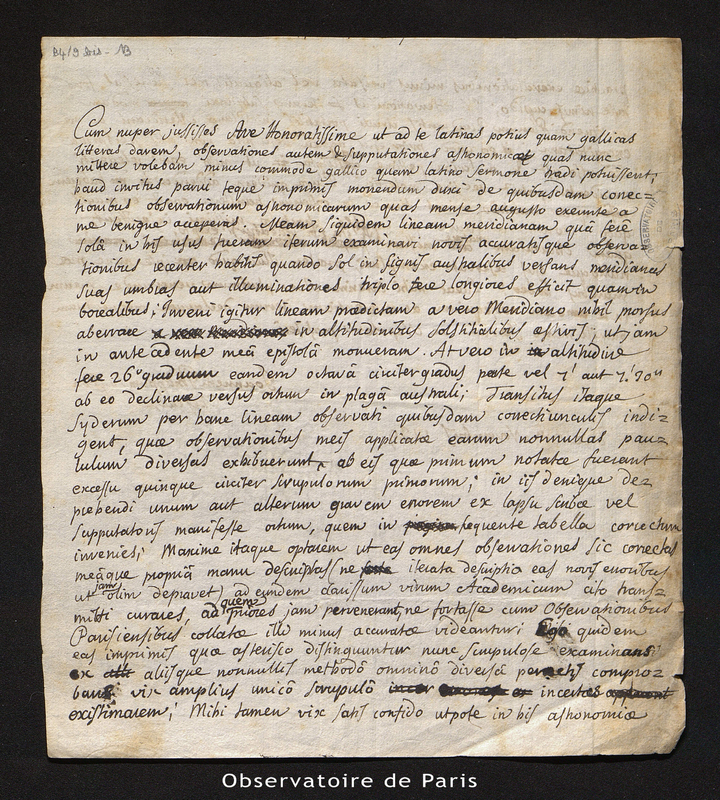 B4/9 bis - 13
Cum nuper jussisses Ave Honoratissime ut ad te latinas potius quam gallicas
litteras darem, observationes autem & supputationes astronomicas quas nunc
mittere volebam minus commode gallico quam latino sermone tradi potuissent;
haud invitus pauci teque imprimis monendum duxi de quibusdam correc-
tionibus observationum astronomicarum quas mense augusto exeunte a
me benigne acceperas. Meam siquidem lineam meridianam quâ fere
solâ in his usus fueram iterum examinavi novis accuratisque observa-
tionibus recenter habitis quando Sol in signis australibus versans meridianas
suas umbras aut illuminationes triplo fere longiores efficit quam in
borealibus; Inveni igitur lineam prædictam a vero Meridiano nihil prorsus
aberrare in altitudinibus solstitialibus æstivis, ut jam
in antecedente meâ epistolâ monueram. At vero in altitudine
fere 26 graduum eandem octavâ circiter gradus parte vel 7' aut 7' 30''
ab eo declinare versus ortum in plagâ australi; Transitus itaque
syderum per hanc lineam observati quibusdam correctiunculis indi-
gent, quæ observationibus meis applicatæ earum nonnullas pau-
lulum diversas exhibuerunt ab eis quæ primum notatæ fuerant
excessu quinque circiter scrupulorum primorum; in iis denique de-
prehendi unum aut alterum gravem errorem ex lapsu scribæ vel
supputatoris manifeste ortum, quem in sequente tabella correctum
invenies; Maxime itaque optarem ut eas omnes observationes sic correctas
meâque propriâ manu descriptas (ne iterata descriptio eas novis erroribus
ut jam olim depravet) ad eundem clarissimum virum Academicum cito trans-
mitti curares, ad quem priores jam pervenerant, ne fortasse cum Observationibus
Parisiensibus collatæ illi minus accuratæ videantur; Ego quidem
eas imprimis quæ asterisco distinguuntur nunc scrupulose examinans
aliisque nonnullis methodo omnino diversâ compro-
bans vix amplius unico scrupulo incertas
existimarem; Mihi tamen vix satis confido utpote in his astronomiæ
OBSERVATOIRE
Observatoire de Paris